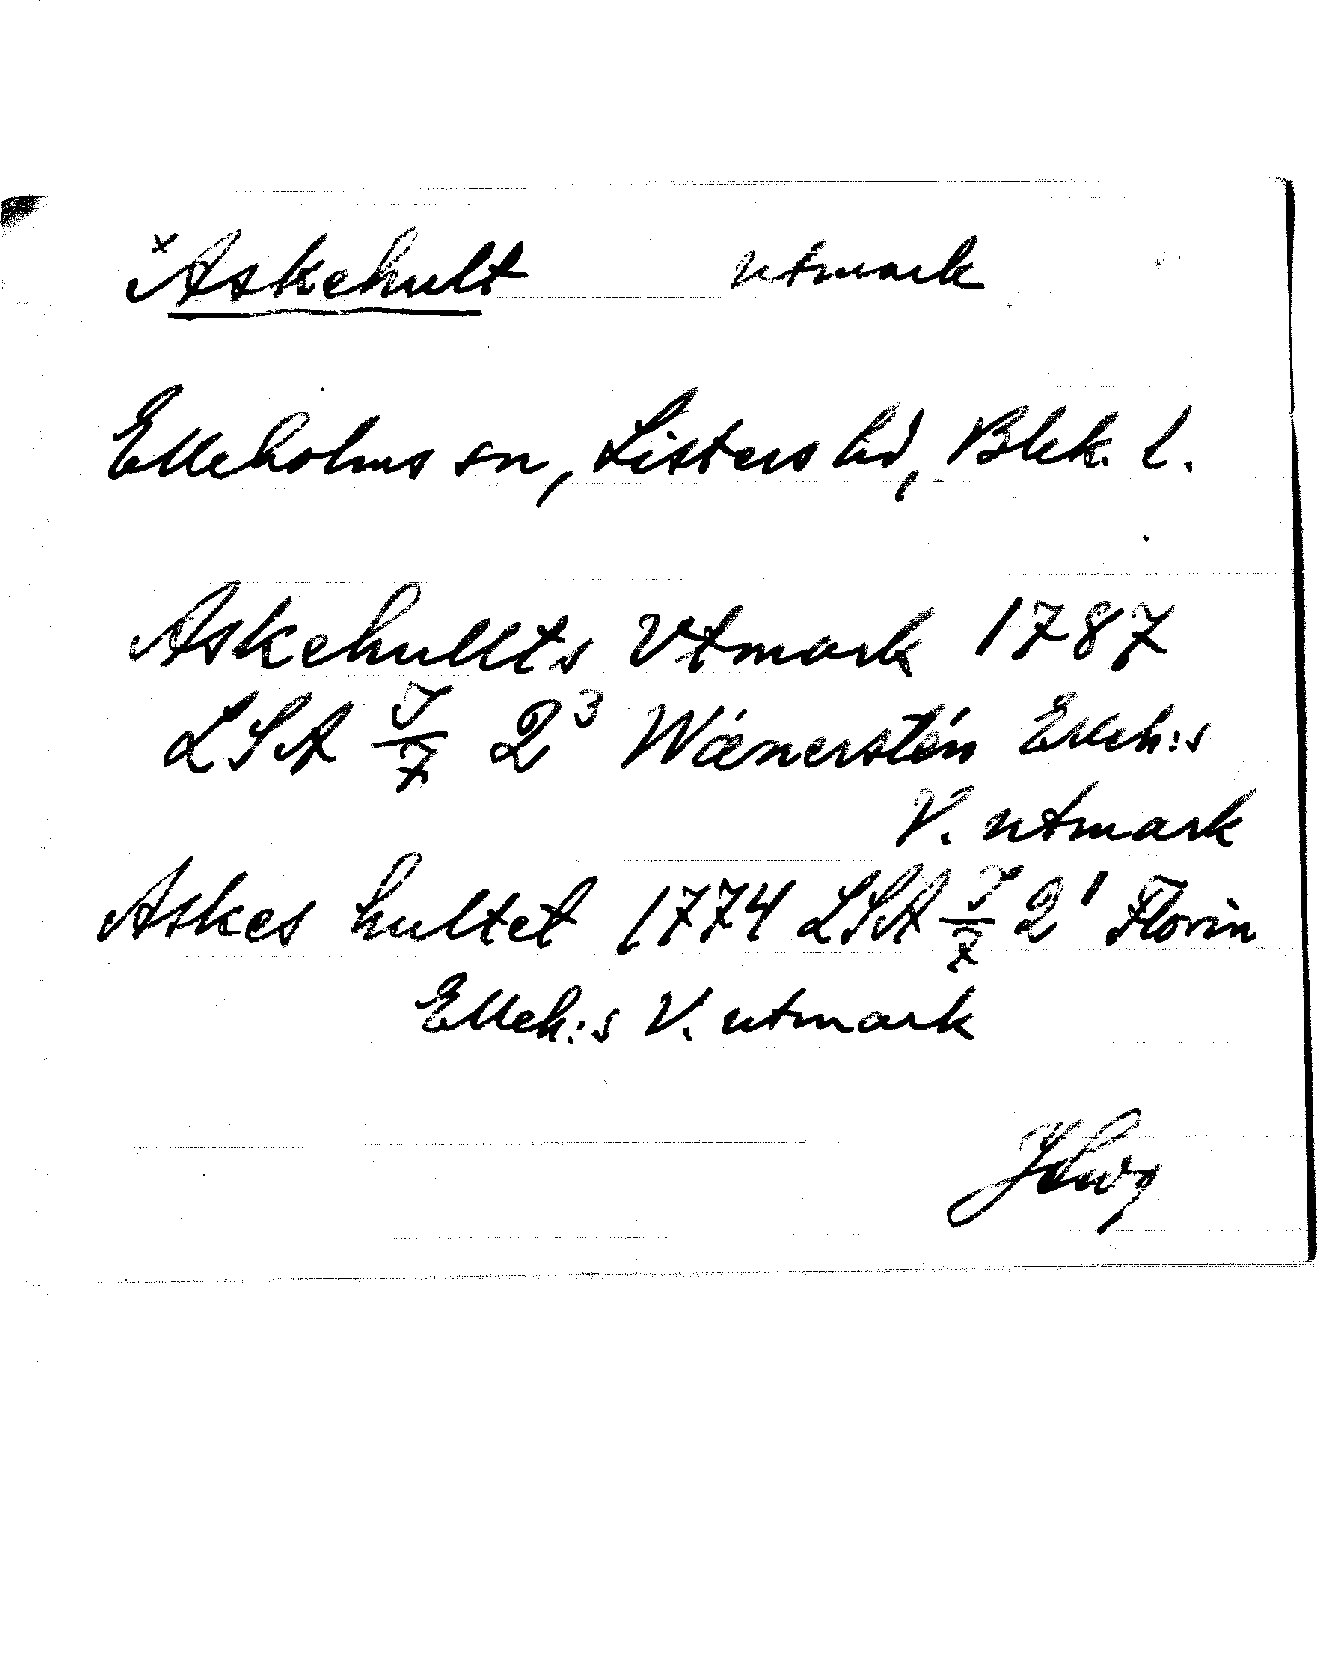 ×Askehult utmark
Elleholms sn, Listers hd, Blek. l.
Askehullts Utmark 1787
LSA J/7 2³ Wænerstén Elleh:s
V. utmark
Askes hultet 1774 LSA J/7 2¹ Florin
Elleh:s V. utmark